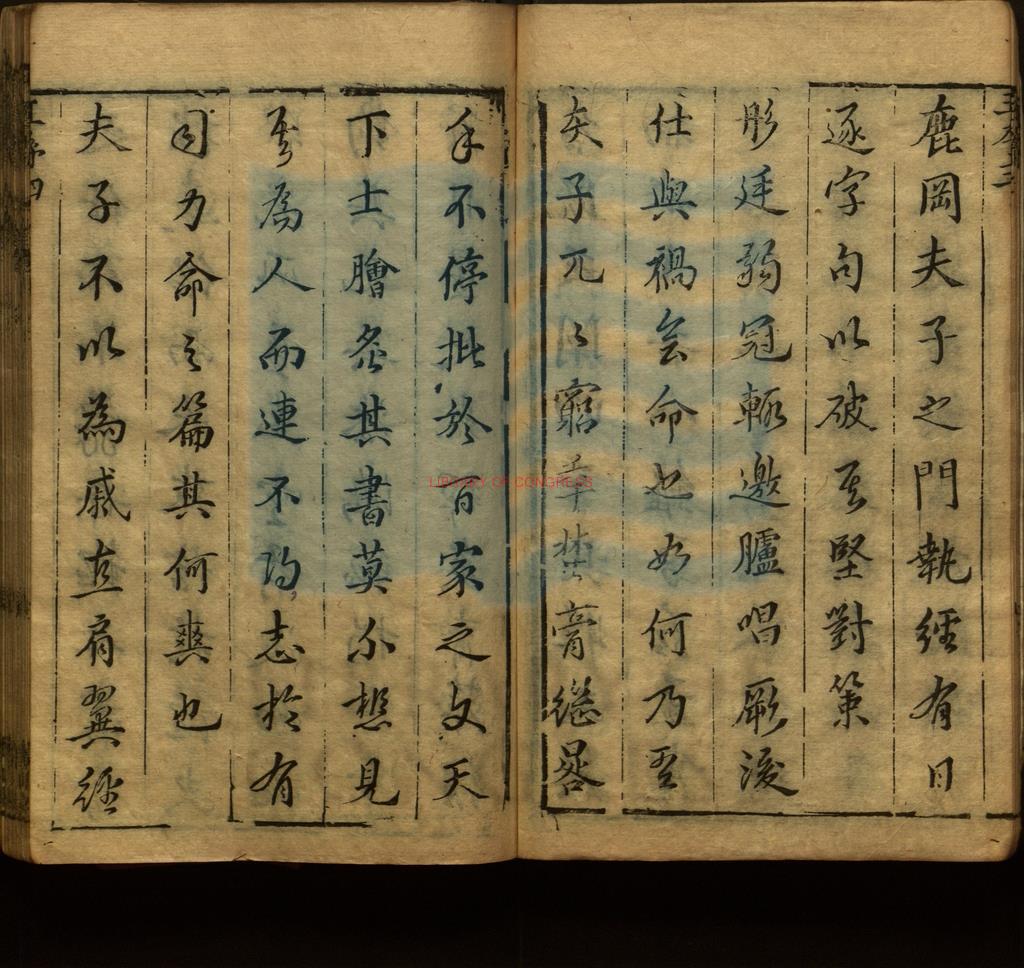 鹿岡夫子之門執經有日
逐字句以破其堅對策
彤廷弱冠輙邀臚唱厥後
仕與禍会命也如何乃吾
夫子兀〻窮年焚膏继晷
手不停批於百家之文天
下士膾炙其書莫不想見
其爲人而連不得志於有
司力命之篇其何爽也
夫子不以為戚直肩翼經
LIBRARY OF CONGRESS